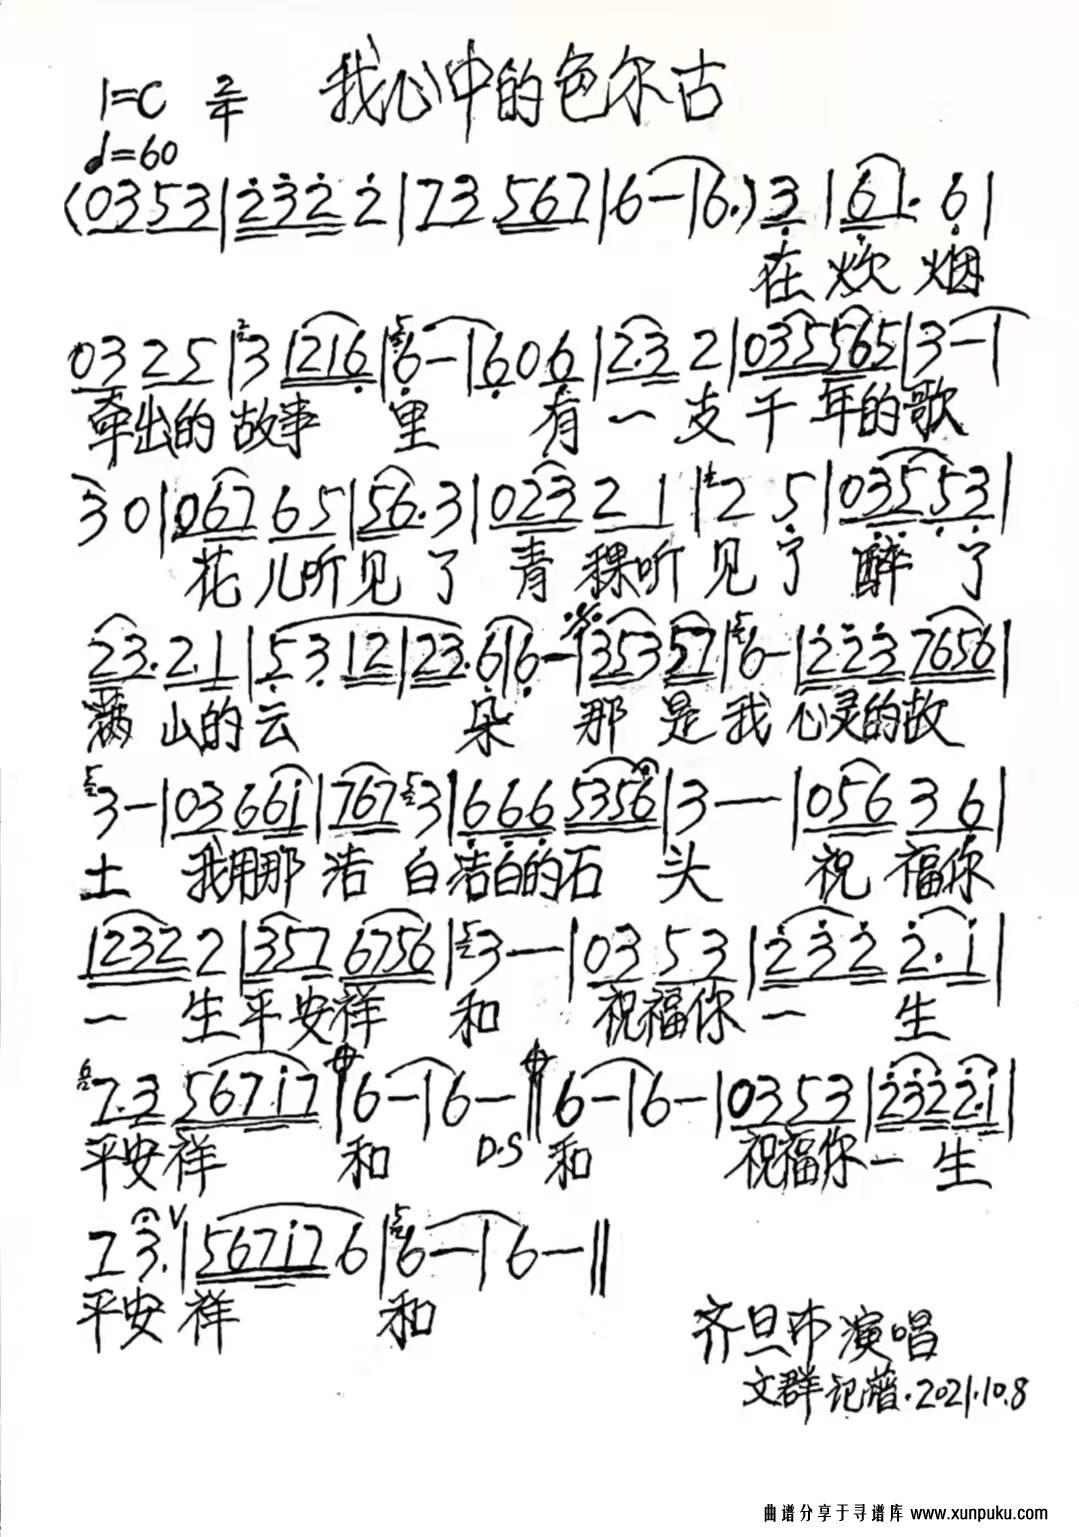 我心中的色尔古
1=C 2/4
♩=60
(0 3 5 3 | 2 3 2 2 | 7 3 5 6 7 | 6 - | 6.) 3 | 6 | . 6 |
在 炊 烟
0 3 2 5 | 3 1 2 1 6 | 6 - | 6 0 6 | 2. 3 2 | 0 3 5 5 6 5 | 3 - |
牵出的 故事 里 有 一 支 千 年的歌
3 0 | 0 6 7 6 5 | 5 6. 3 | 0 2 3 2 1 | 2 5 | 0 3 5 5 3 |
花 儿听见 了 青 稞听 见 了 醉 了
2 3. 2. 1 | 5 3 1 2 | 2 3. 6 | 6 - | 3 5 3 5 7 | 6 - | 2 2 3 7 6 5 6 |
满 山的云 朵 那 是我 心灵的故
3 - | 0 3 6 6 1 | 7 6 7 3 | 6 6 6 5 3 5 6 | 3 - - | 0 5 6 3 6 |
土 我用那 洁 白洁白的石 头 祝 福你
1 2 3 2 2 | 3 5 7 6 7 5 6 | 3 - | 0 3 5 3 | 2 3 2 2. 1 |
一 生平安祥 和 祝福你一 生
7. 3 5 6 7 1 7 | 6 - | 6 - || 6 - | 6 - | 0 3 5 3 | 2 3 2 2 2. 1 |
平安祥 和 D.S 和 祝福你一 生
7 3. V | 5 6 7 1 7 6 | 6 - | 6 - ||
平安 祥 和
齐旦布演唱
文群记谱.2021.10.8
曲谱分享于寻谱库 www.xunpuku.com